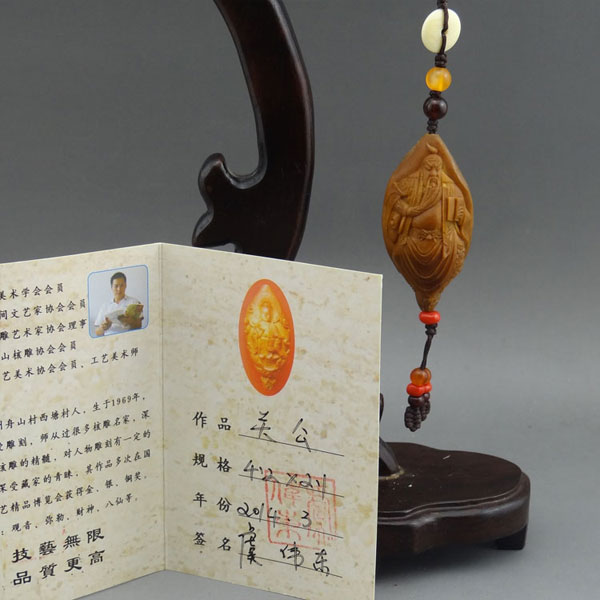 美术学会会员
间文艺家协会会员
雕艺术家协会理事
山核雕协会会员
艺美术协会会员、工艺美术师
舟山村西塘村人，生于1969年，
受雕刻，师从过很多核雕名家，深
核雕的精髓，对人物雕刻有一定的
深受藏家的青睐，其作品多次在国
艺精品博览会获得金、银、铜奖，
：观音、弥勒、财神、八仙等，
技藝無限
品質更高
作品 关公
規格 42×24
年份 2014.3
签名 虞伟东